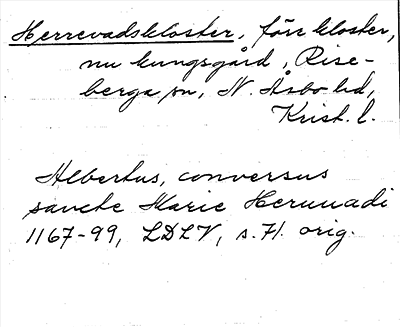 Herrevadskloster, förr kloster,
nu kungsgård, Rise-
berga sn, N. Åsbo hd,
Krist. l.
Albertus, conversus
sancte Marie Herinuadi
1167-99, LDLV, s. 71. orig.